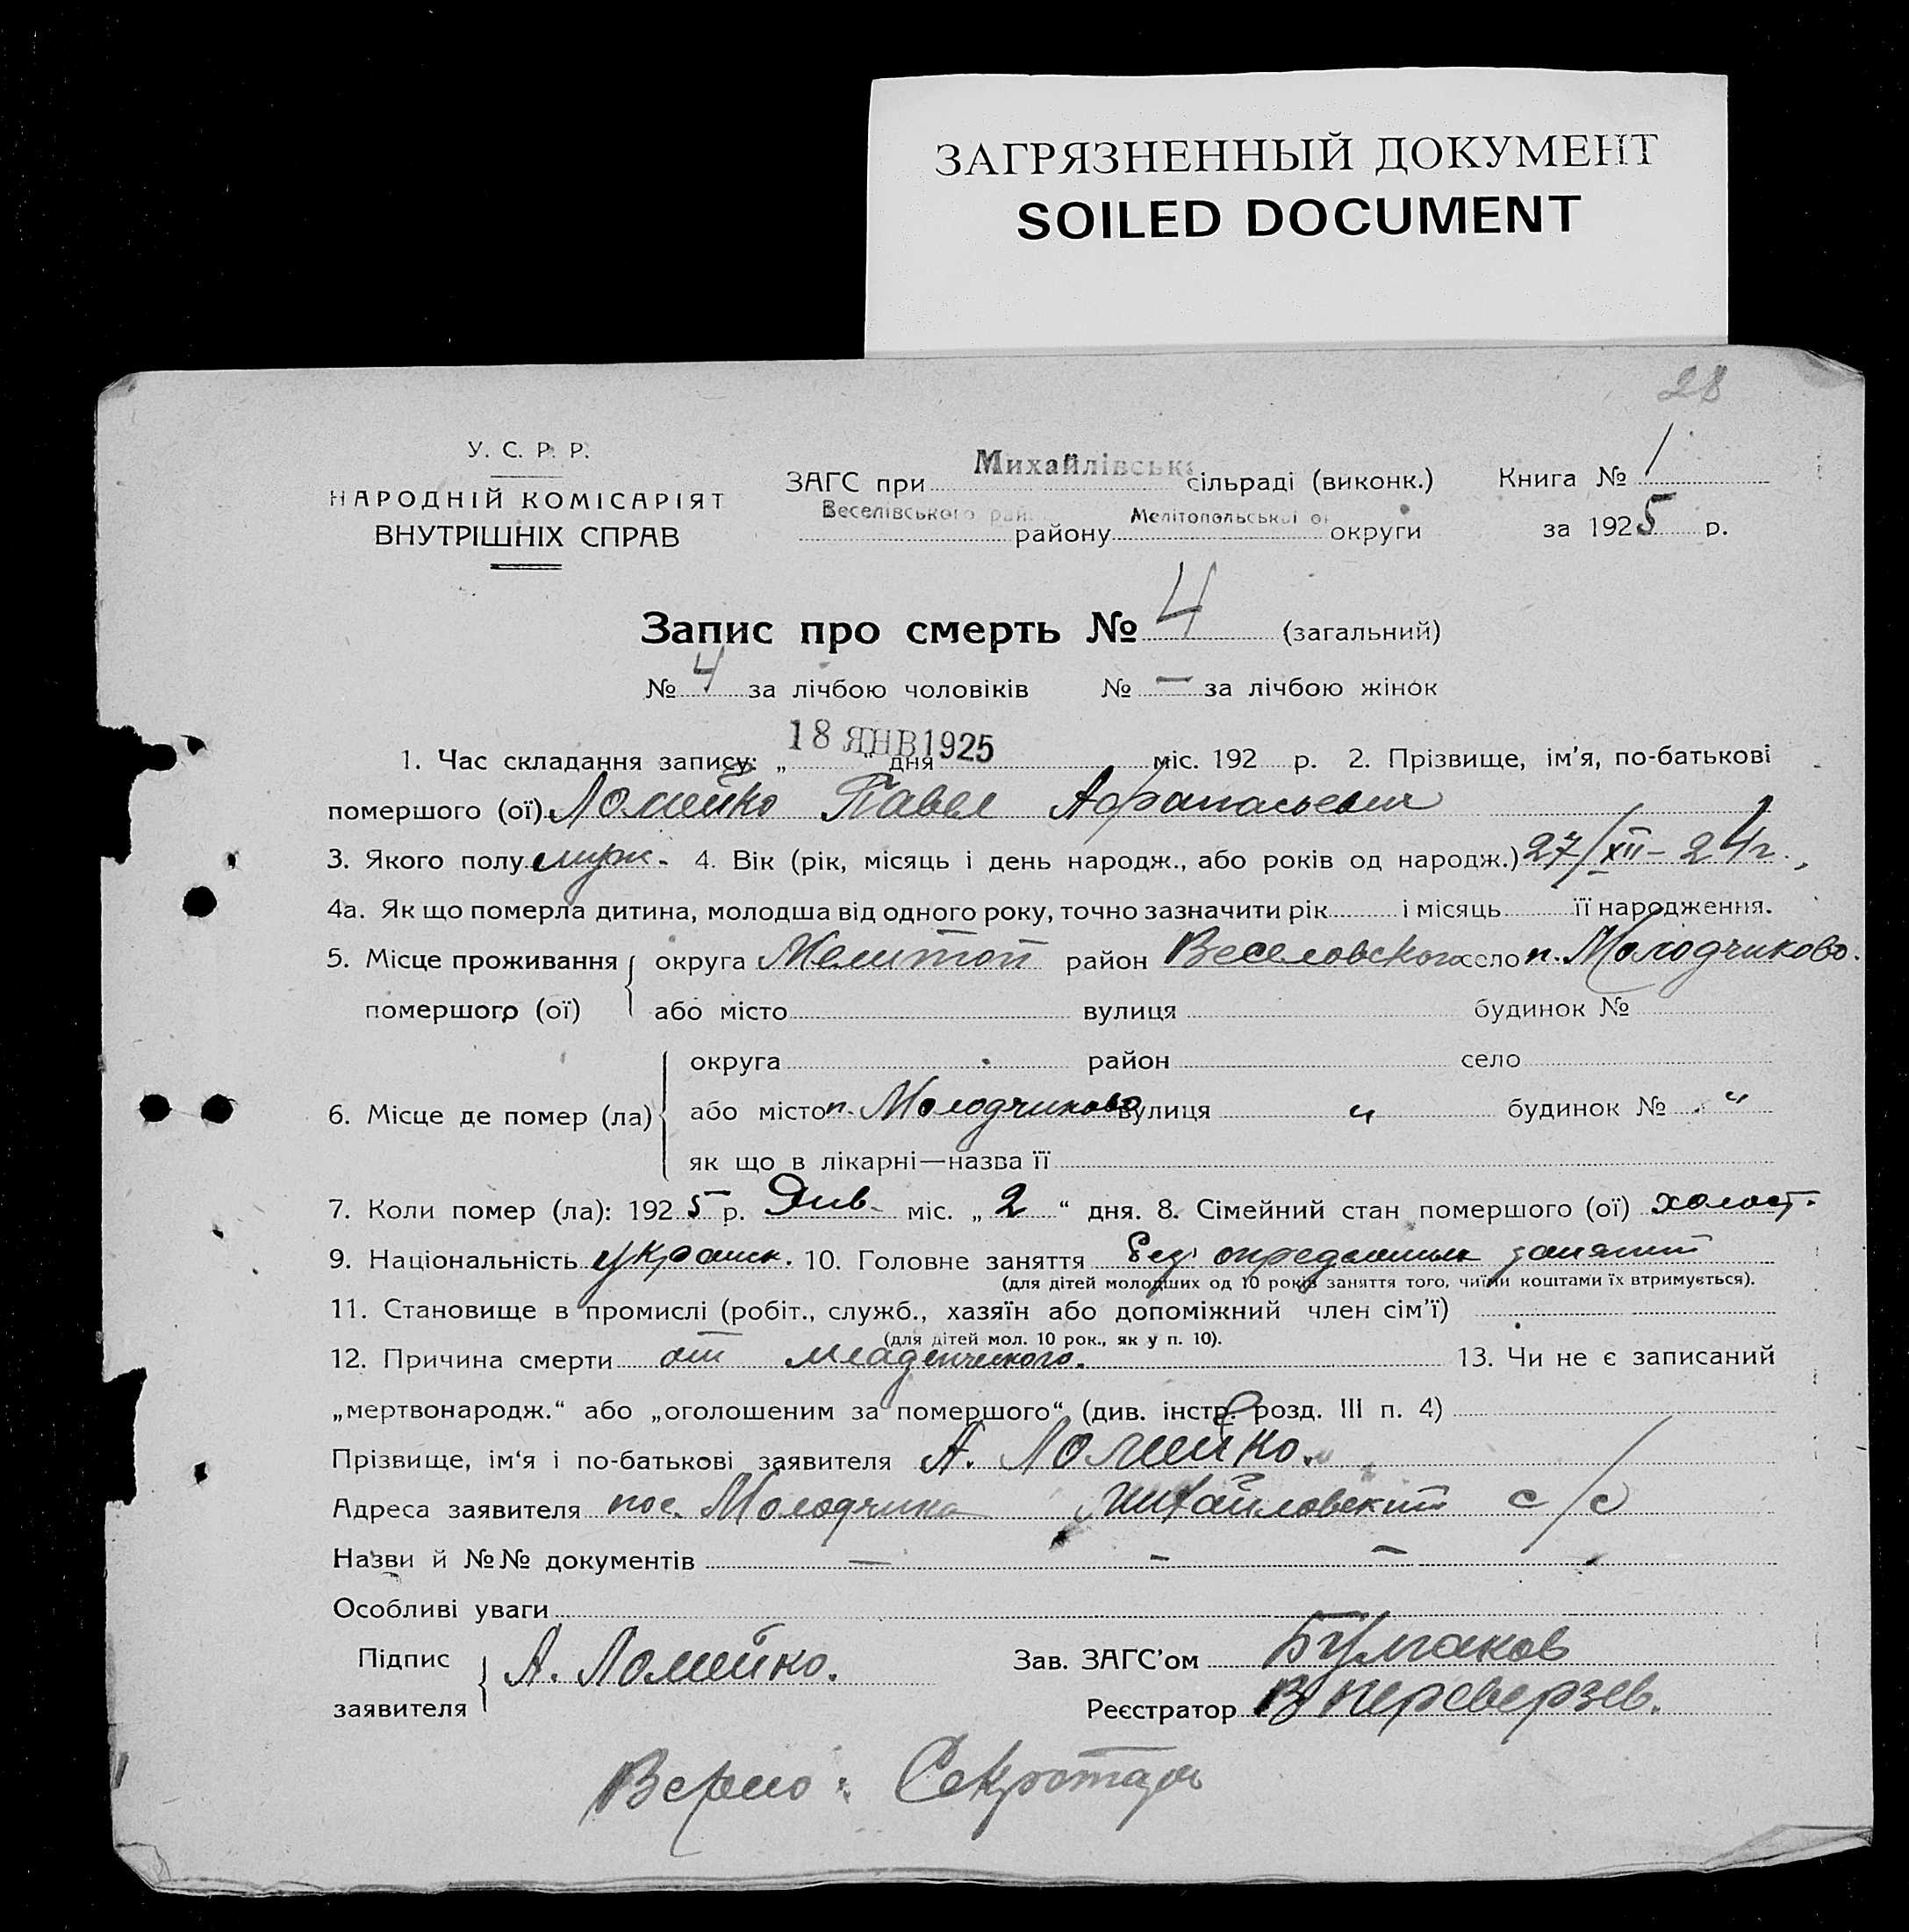 ЗАГРЯЗНЕННЫЙ ДОКУМЕНТ
SOILED DOCUMENT
28
У. С. Р. Р.
НАРОДНІЙ КОМІСАРІЯТ
ВНУТРІШНІХ СПРАВ
ЗАГС при Михайлівська сільраді (виконк.) Книга № 1
Веселівського рай. району Мелітопольської о округи за 1925 р.
Запис про смерть № 4 (загальний)
№ 4 за лічбою чоловіків № — за лічбою жінок
1. Час складання запису: „ 18 ЯНВ 1925 “ дня міс. 192 р. 2. Прізвище, ім’я, по-батькові
помершого (ої) Ломейко Павел Афанасьевич
3. Якого полу муж. - 4. Вік (рік, місяць і день народж., або років од народж.) 27/XII – 24 г.,
4а. Як що померла дитина, молодша від одного року, точно зазначити рік і місяць її народження.
5. Місце проживання округа Мелитоп район Веселовского село п. Молодчиково.
помершого (ої) або місто вулиця будинок №
округа район село
6. Місце де помер (ла) або місто п. Молодчиково вулиця „ будинок № „
як що в лікарні—назва її
7. Коли помер (ла): 1925 р. Янв. міс. „ 2 “ дня. 8. Сімейний стан помершого (ої) холост.
9. Національність украин. 10. Головне заняття без определенных занятий
(для дітей молодших од 10 років заняття того, чиїми коштами їх втримується).
11. Становище в промислі (робіт., служб., хазяїн або допоміжний член сім’ї)
(для дітей мол. 10 рок., як у п. 10).
12. Причина смерти от младенческого. 13. Чи не є записаний
„мертвонародж.“ або „оголошеним за помершого“ (див. інстр. розд. III п. 4)
Прізвище, ім‘я і по-батькові заявителя А. Ломейко.
Адреса заявителя пос. Молодчина Михайловский с/с
Назви й №№ документів — — —
Особливі уваги
Підпис заявителя А. Ломейко. Зав. ЗАГС’ом Булгаков
Реєстратор В Переверзев.
Верно: Секретарь